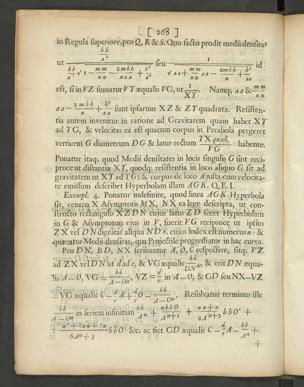 [ 268 ]
in Regula superiore, pro Q, R & S. Quo facto prodit medii densitas
ut bb/a² / bb/a² √1 - mm/nn - 2mbb/naa + b⁴/a⁴ seu 1 / √aa + mm/nn aa - 2mbb/n + b⁴/aa id
est, si in VZ sumatur VY æqualis VG, ut 1/XY. Namq; aa & mm/nn
aa - 2mbb/n + b⁴/aa sunt ipsarum XZ & ZY quadrata. Resisten-
tia autem invenitur in ratione ad Gravitatem quam habet XY
ad YG, & velocitas ea est quacum corpus in Parabola pergeret
verticem G diametrum DG & latus rectum YX quad./VG habente.
Ponatur itaq; quod Medii densitates in locis singulis G sint reci-
proce ut distantiæ XY, quodq; resistentia in loco aliquo G sit ad
gravitatem ut XY ad YG; & corpus de loco A justa cum velocita-
te emissum describet Hyperbolam illam AGK. Q.E.I.
Exempl. 4. Ponatur indefinite, quod linea AGK Hyperbola
sit, centro X Asymptotis MX, NX ea lege descripta, ut con-
structo rectangulo XZDN cujus latus ZD secet Hyperbolam
in G & Asymptoton ejus in V, fuerit VG reciproce ut ipsius
ZX vel DN dignitas aliqua NDⁿ, cujus index est numerus n: &
quæratur Medii densitas, qua Projectile progrediatur in hac curva.
Pro DN, BD, NX scribantur A, O, C respective, sitq; VZ
ad ZX vel DN ut d ad e, & VG æqualis bb/DNⁿ, & erit DN æqua-
lis A - O, VG = bb/A-Oⁿ, VZ = d/e in A - O, & GD seu NX - VZ
- VG æqualis C - d/e A + d/e O - bb/A-Oⁿ. Resolvatur terminus ille
bb/A-Oⁿ in seriem infinitam bb/Aⁿ + nbbO/Aⁿ⁺¹ + nn+n/2Aⁿ⁺² bbO² +
n³+3nn+2n/6Aⁿ⁺³ bbO³ &c. ac fiet GD æqualis C - d/e A - bb/Aⁿ +
+